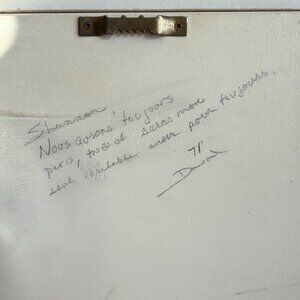 Shannon,
Nous aurons toujours
paris, tu es et seras mon
seul véritable amour pour toujours.
71'
David